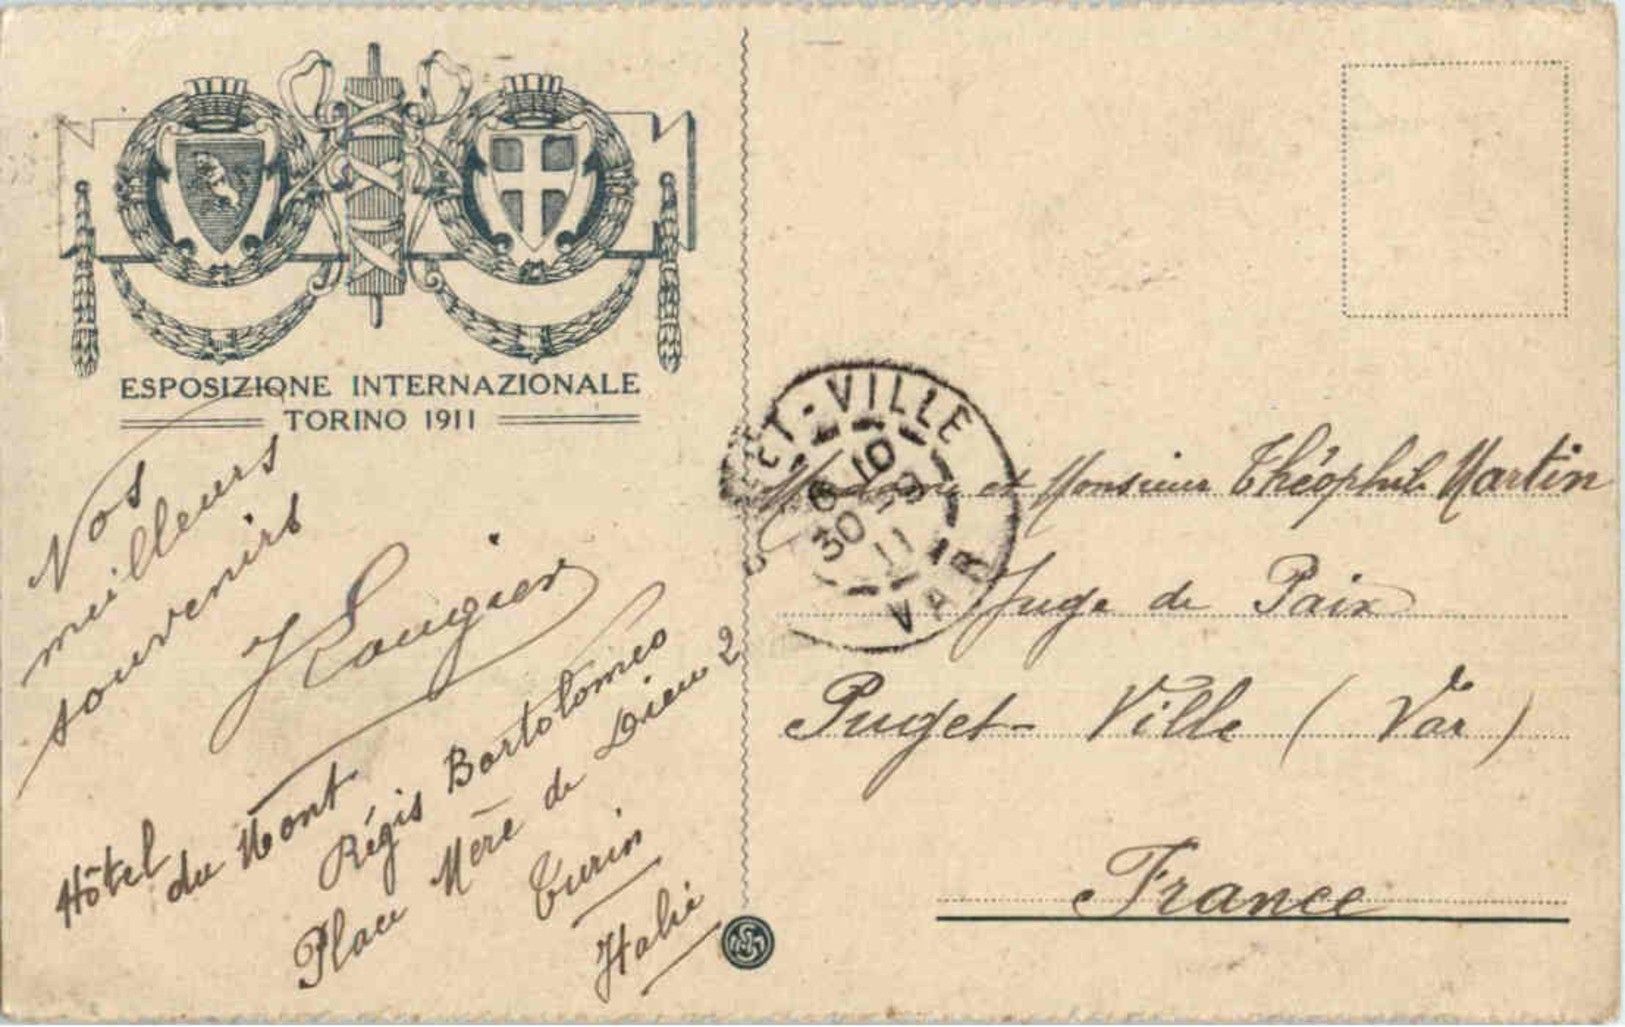 ESPOSIZIONE INTERNAZIONALE
TORINO 1911
Nos
meilleurs
souvenirs
Hôtel
du Mont
Régis Bartolomeo
Place Mère de Dieu 2
Turin
Italie
ET-VILLE
10
30
11
VAR
Madame et Monsieur Théophile Martin
Juge de Paix
Puget-Ville (Var)
France